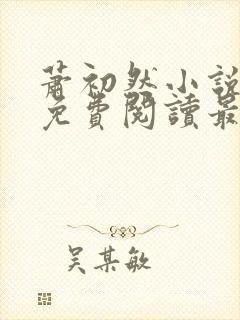 蕭初然小說
免費閱讀最
吳某敏